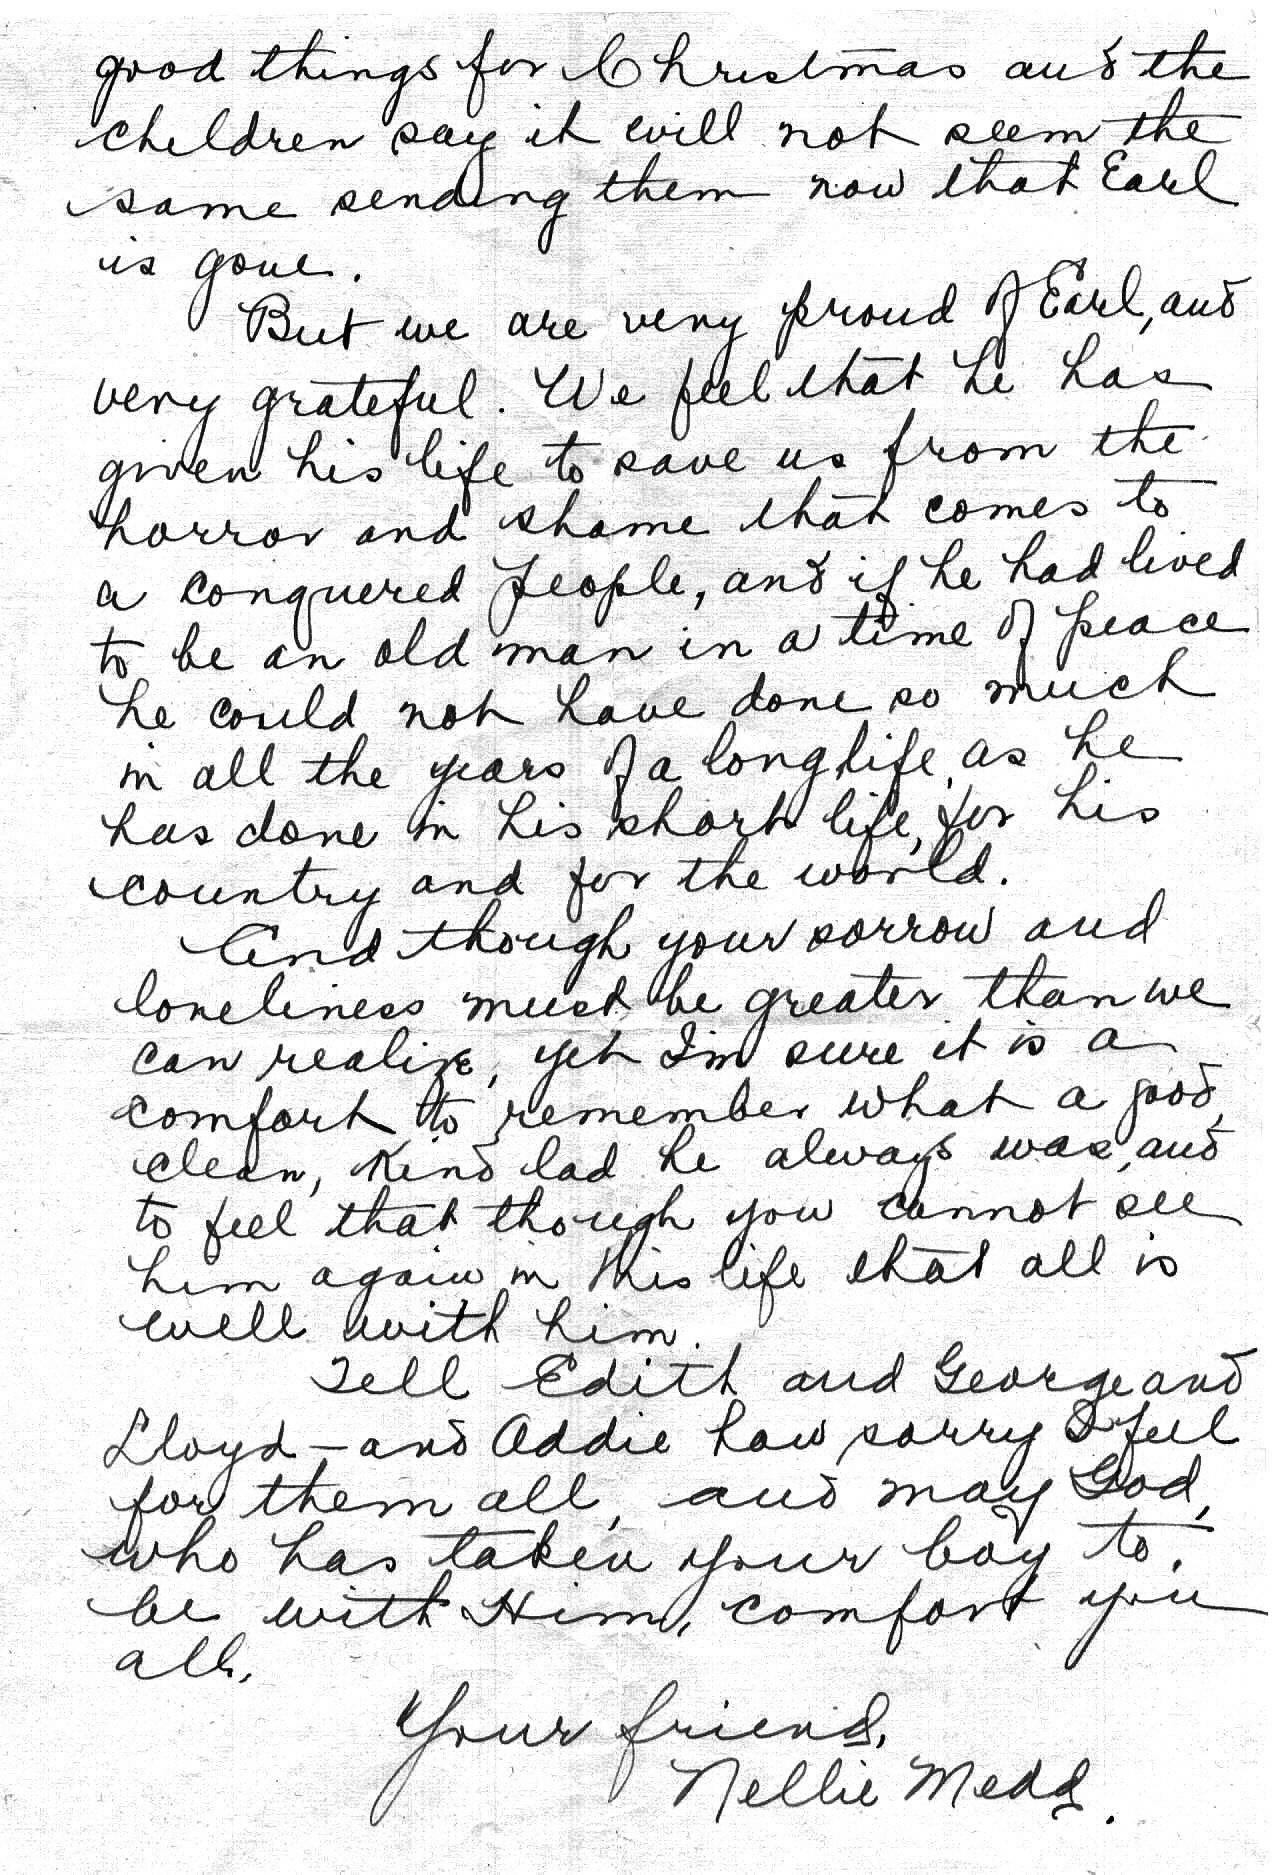 good things for Christmas and the
children say it will not seem the
same sending them now that Earl
is gone.
But we are very proud of Earl, and
very grateful. We feel that he has
given his life to save us from the
horror and shame that comes to
a conquered people, and if he had lived
to be an old man in a time of peace
he could not have done so much
in all the years of a long life, as he
has done in his short life, for his
country and for the world.
And though your sorrow and
loneliness must be greater than we
can realize, yet I'm sure it is a
comfort to remember what a good,
clean, kind lad he always was, and
to feel that though you cannot see
him again in this life that all is
well with him.
Tell Edith and George and
Lloyd - and Addie how sorry I feel
for them all, and may God,
who has taken your boy to
be with Him, comfort you
all.
Your friend,
Nellie Medd.